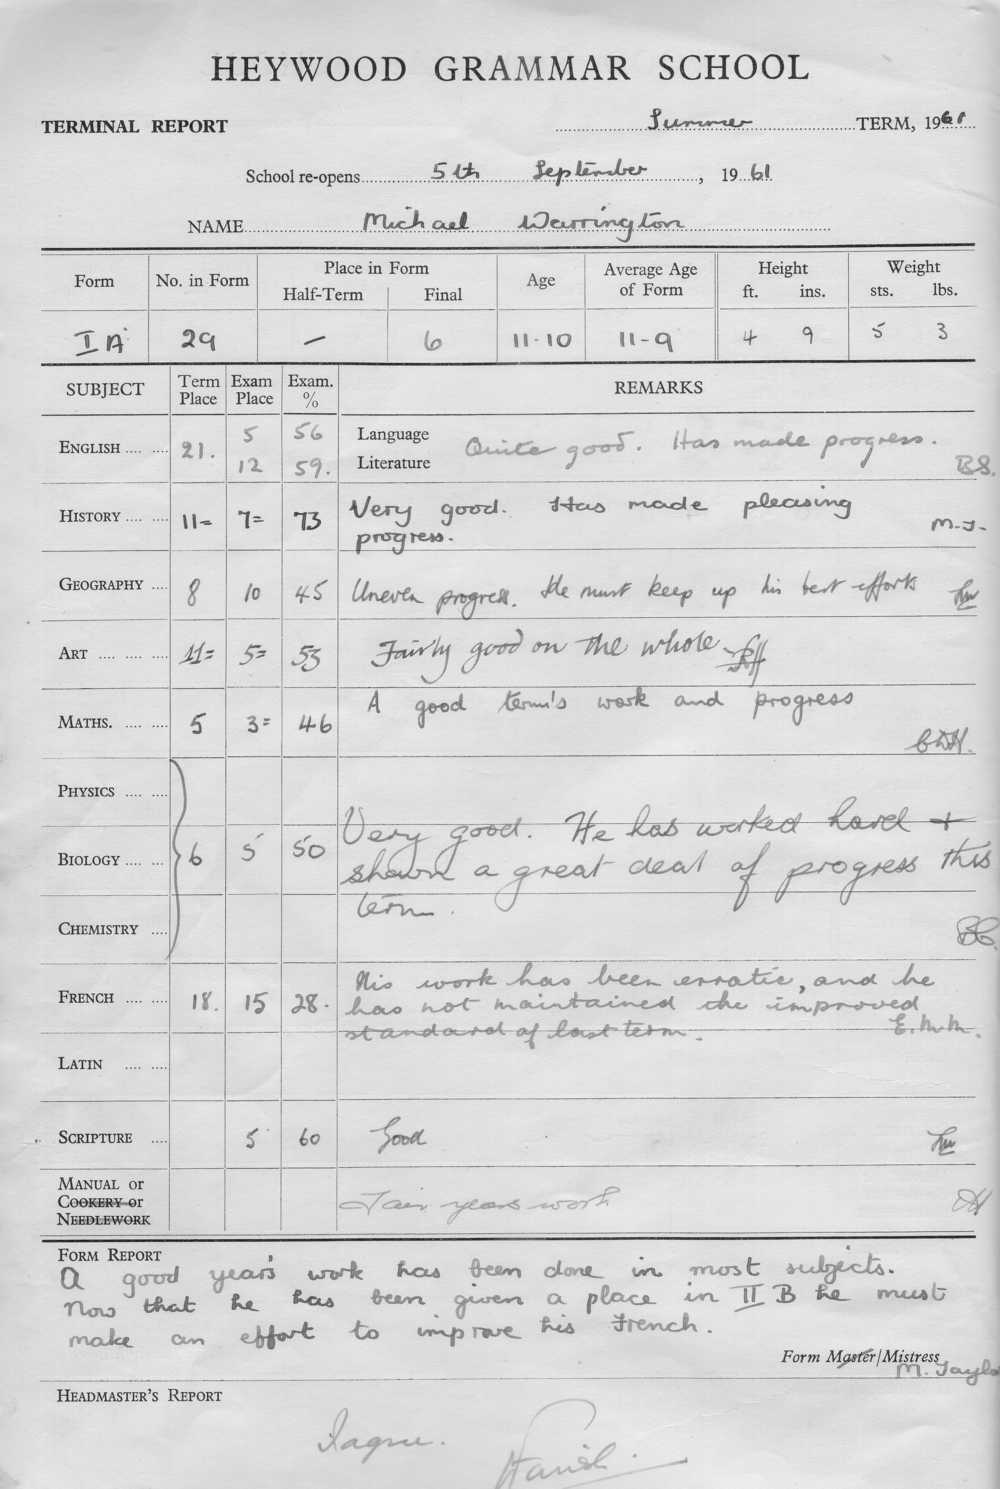 HEYWOOD GRAMMAR SCHOOL
TERMINAL REPORT Summer TERM, 1961
School re-opens 5th September, 1961
NAME Michael Warrington
Form No. in Form Place in Form Half-Term Final Age Average Age of Form Height ft. ins. Weight sts. lbs.
I A 29 — 6 11-10 11-9 4 9 5 3
SUBJECT Term Place Exam Place Exam. % REMARKS
ENGLISH 21. 5 56 Language Quite good. Has made progress.
12 59. Literature B.S.
HISTORY 11= 7= 73 Very good. Has made pleasing
progress. M.T.
GEOGRAPHY 8 10 45 Uneven progress. He must keep up his best efforts
ART 11= 5= 53 Fairly good on the whole
MATHS. 5 3= 46 A good term's work and progress
PHYSICS
BIOLOGY 6 5 50 Very good. He has worked hard +
shown a great deal of progress this
term.
CHEMISTRY
FRENCH 18. 15 28. His work has been erratic, and he
has not maintained the improved
standard of last term. E.M.M.
LATIN
SCRIPTURE 5 60 Good
MANUAL or
COOKERY or
NEEDLEWORK Fair years work
FORM REPORT
A good year's work has been done in most subjects.
Now that he has been given a place in II B he must
make an effort to improve his French.
Form Master/Mistress
M. Taylo
HEADMASTER'S REPORT
I agree.